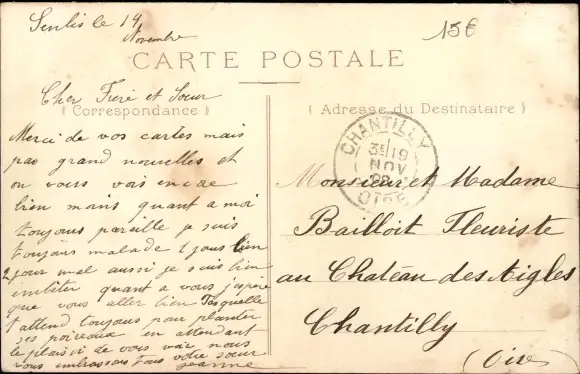 Senlis le 19
Novembre
15€
CARTE POSTALE
Cher Frere et Soeur
( Correspondance )
( Adresse du Destinataire )
Merci de vos cartes mais
pas grand nouvelles et
on vous vois encae
bien moins quant a moi
toujous pareille je suis
toujous malade 1 jous bien
2 jour mal aussi je suis bien
quant a vous j'espere
que vous aller bien
t attend toujous pour planter
ses poireaux en attendant
le plaisir de vous voir nous
vous embrassons tous votre soeur
Jeanne
CHANTILLY
19
NOV
OISE
Monsieur et Madame
Bailloit Fleuriste
au Chateau des Aigles
Chantilly
(Oise)